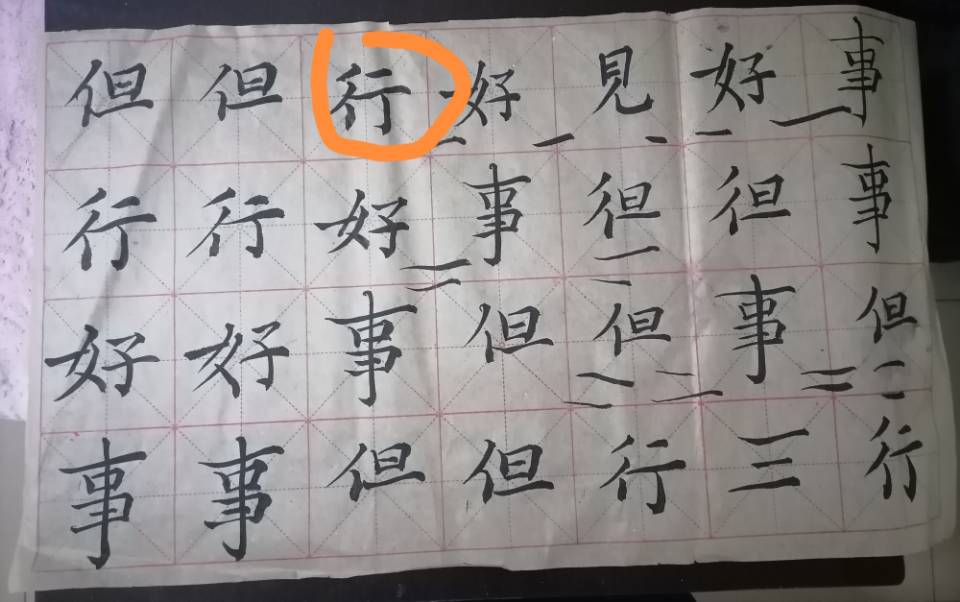 但行好事
但行好事
行好事但
好事但但
見但行
好事三
事事但行